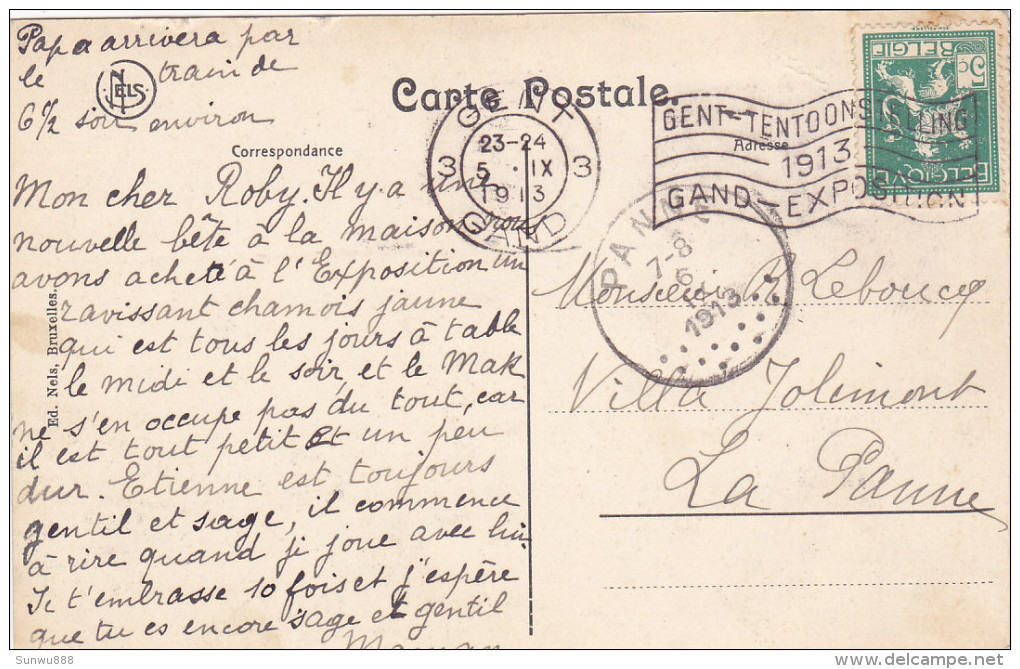 Papa arrivera par
le train de
6 1/2 soir environ
NELS
Carte Postale.
Correspondance
Adresse
GENT
3 23-24 3
5 · IX
1913
GAND
GENT-TENTOONSTELLING
1913
GAND-EXPOSITION
BELGIE
5 c
BELGIQUE
PANNE
7-8
6
1913
Mon cher Roby. Il y a une
nouvelle bête à la maison nous
avons acheté à l'Exposition un
ravissant chamois jaune
qui est tous les jours à table
le midi et le soir, et le Mak
ne s'en occupe pas du tout, car
il est tout petit et un peu
dur. Etienne est toujours
gentil et sage, il commence
à rire quand je joue avec lui.
Je t'embrasse 10 fois et j'espère
que tu es encore sage et gentil
Maman
Monsieur R. Leboucq
Villa Jolimont
La Panne
Ed. Nels, Bruxelles.
Sunwu888
delcampe.net